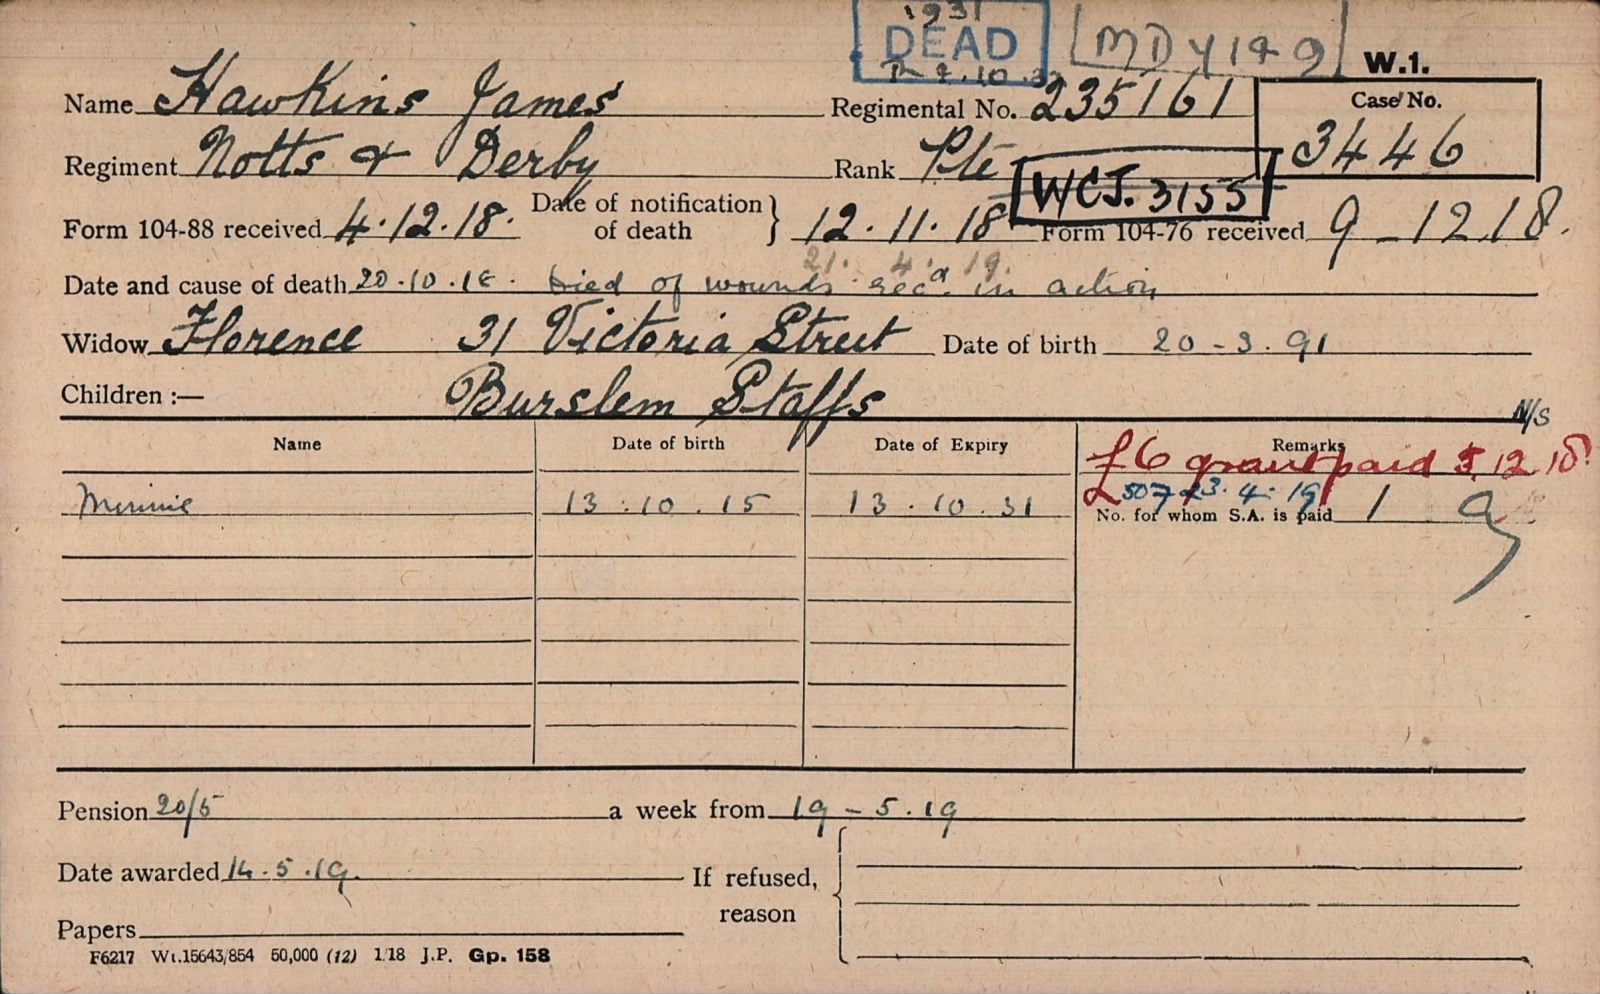 1931
DEAD
MD 4149
W.1.
Name Hawkins James
Regimental No. 235161
Case No. 3446
Regiment Notts & Derby
Rank Pte
WCJ. 3155
Form 104-88 received 4.12.18.
Date of notification of death } 12.11.18
Form 104-76 received 9-12.18.
21. 4. 19.
Date and cause of death 20.10.18. Died of wounds recd. in action
Widow Florence 31 Victoria Street
Date of birth 20-3.91
Children :— Burslem Staffs
N/S
Name Date of birth Date of Expiry Remarks
£6 grant paid 5.12.18
Minnie 13.10.15 13.10.31
23.4.19
No. for whom S.A. is paid 1
Pension 20/5 a week from 19-5.19
Date awarded 14.5.19.
If refused, reason
Papers
F6217 Wt.15643/854 50,000 (12) 1/18 J.P. Gp. 158